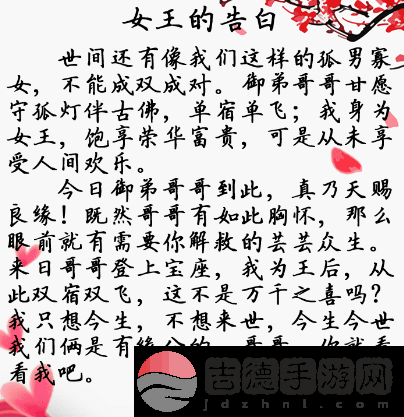 女王的告白
世间还有像我们这样的孤男寡
女，不能成双成对。御弟哥哥甘愿
守孤灯伴古佛，单宿单飞；我身为
女王，饱享荣华富贵，可是从未享
受人间欢乐。
今日御弟哥哥到此，真乃天赐
良缘！既然哥哥有如此胸怀，那么
眼前就有需要你解救的芸芸众生。
来日哥哥登上宝座，我为王后，从
此双宿双飞，这不是万千之喜吗？
我只想今生，不想来世，今生今世
我们俩是有缘
看我吧。
吉德手游网
jdzhnl.com